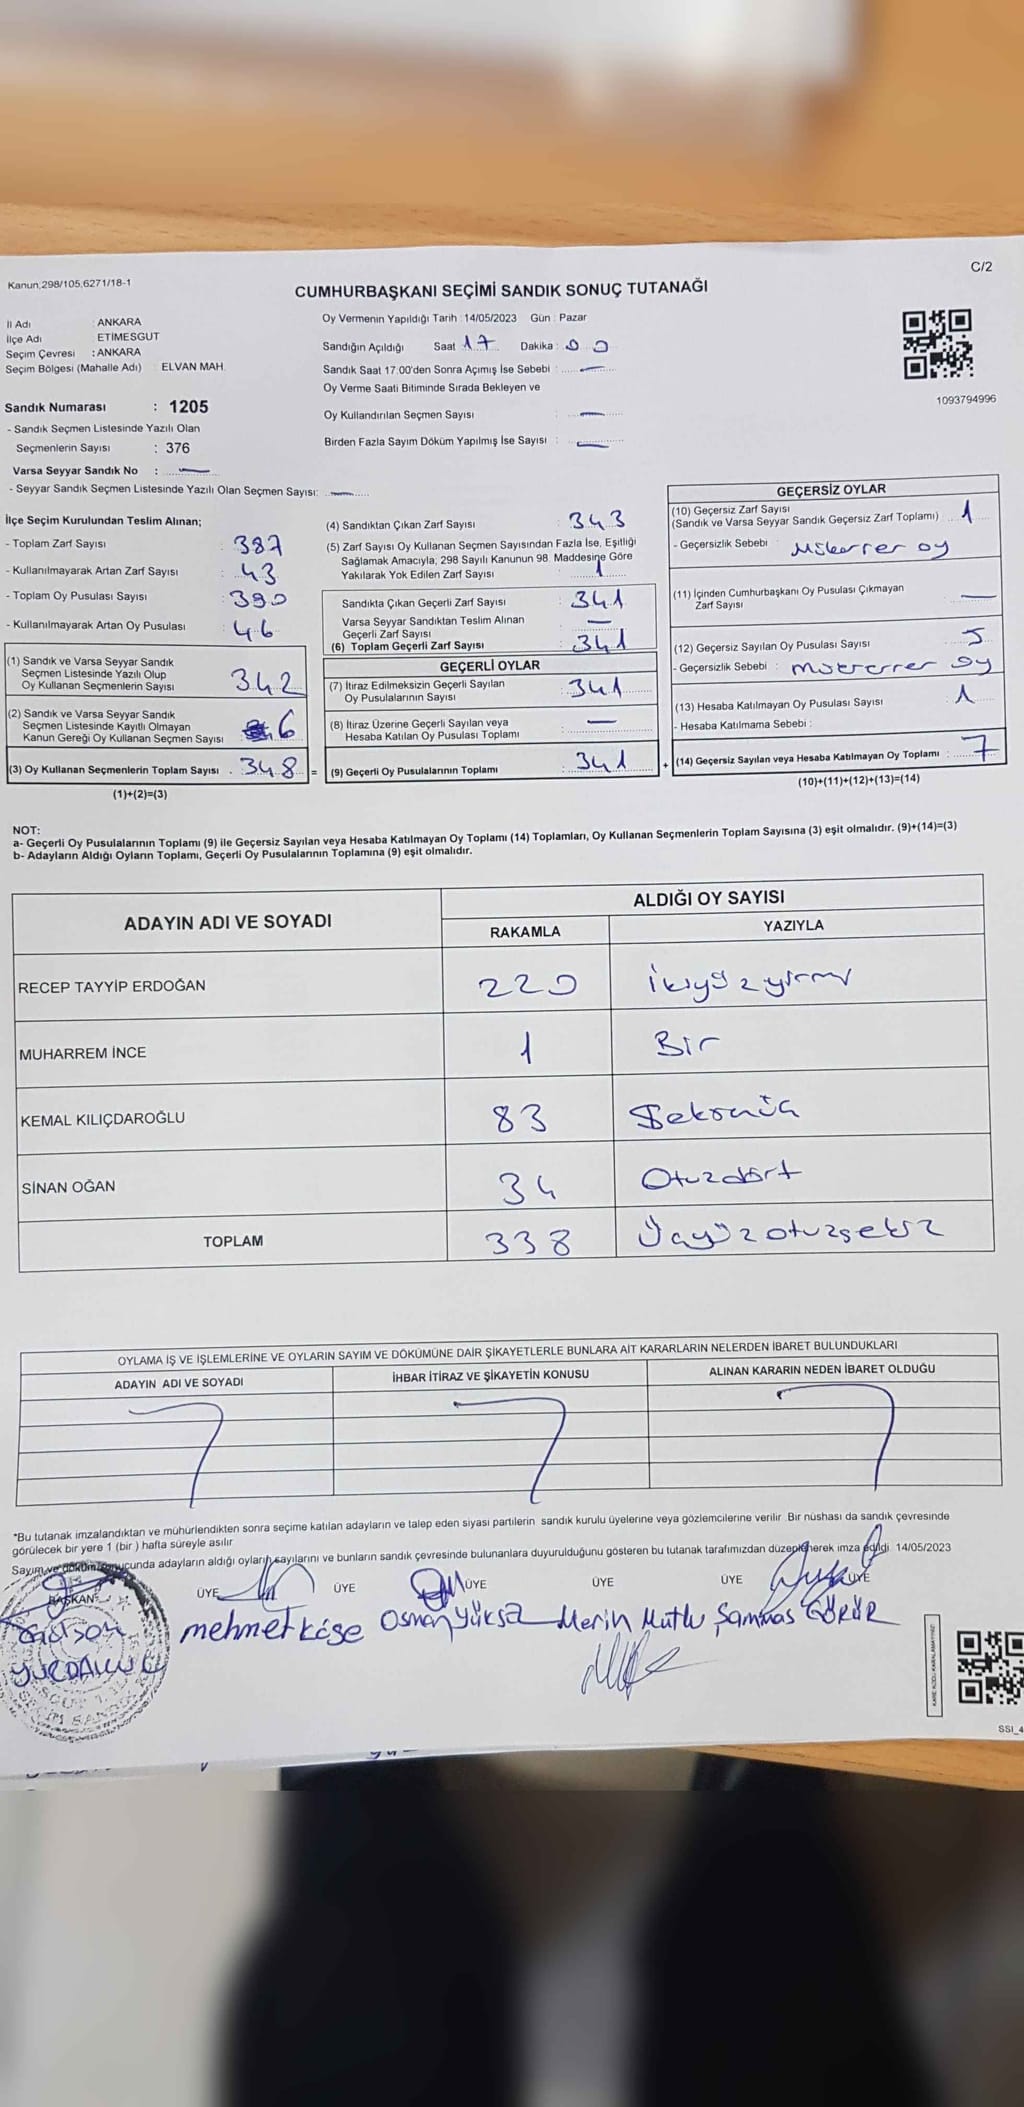 Kanun;298/105,6271/18-1
C/2
CUMHURBAŞKANI SEÇİMİ SANDIK SONUÇ TUTANAĞI
İl Adı : ANKARA
İlçe Adı : ETİMESGUT
Seçim Çevresi : ANKARA
Seçim Bölgesi (Mahalle Adı) : ELVAN MAH.
Sandık Numarası : 1205
- Sandık Seçmen Listesinde Yazılı Olan
Seçmenlerin Sayısı : 376
Varsa Seyyar Sandık No : —
- Seyyar Sandık Seçmen Listesinde Yazılı Olan Seçmen Sayısı: —
Oy Vermenin Yapıldığı Tarih : 14/05/2023 Gün : Pazar
Sandığın Açıldığı Saat 17 Dakika : 00
Sandık Saat 17.00'den Sonra Açımış İse Sebebi : —
Oy Verme Saati Bitiminde Sırada Bekleyen ve
Oy Kullandırılan Seçmen Sayısı : —
Birden Fazla Sayım Döküm Yapılmış İse Sayısı : —
1093794996
İlçe Seçim Kurulundan Teslim Alınan;
- Toplam Zarf Sayısı : 387
- Kullanılmayarak Artan Zarf Sayısı : 43
- Toplam Oy Pusulası Sayısı : 390
- Kullanılmayarak Artan Oy Pusulası : 46
(1) Sandık ve Varsa Seyyar Sandık
Seçmen Listesinde Yazılı Olup
Oy Kullanan Seçmenlerin Sayısı 342
(2) Sandık ve Varsa Seyyar Sandık
Seçmen Listesinde Kayıtlı Olmayan
Kanun Gereği Oy Kullanan Seçmen Sayısı 6
(3) Oy Kullanan Seçmenlerin Toplam Sayısı : 348 =
(1)+(2)=(3)
(4) Sandıktan Çıkan Zarf Sayısı : 343
(5) Zarf Sayısı Oy Kullanan Seçmen Sayısından Fazla İse, Eşitliği
Sağlamak Amacıyla, 298 Sayılı Kanunun 98. Maddesine Göre
Yakılarak Yok Edilen Zarf Sayısı : 1
Sandıkta Çıkan Geçerli Zarf Sayısı : 341
Varsa Seyyar Sandıktan Teslim Alınan
Geçerli Zarf Sayısı : —
(6) Toplam Geçerli Zarf Sayısı : 341
GEÇERLİ OYLAR
(7) İtiraz Edilmeksizin Geçerli Sayılan
Oy Pusulalarının Sayısı : 341
(8) İtiraz Üzerine Geçerli Sayılan veya
Hesaba Katılan Oy Pusulası Toplamı : —
(9) Geçerli Oy Pusulalarının Toplamı : 341 +
GEÇERSİZ OYLAR
(10) Geçersiz Zarf Sayısı
(Sandık ve Varsa Seyyar Sandık Geçersiz Zarf Toplamı) : 1
- Geçersizlik Sebebi : Mükerrer oy
(11) İçinden Cumhurbaşkanı Oy Pusulası Çıkmayan
Zarf Sayısı : —
(12) Geçersiz Sayılan Oy Pusulası Sayısı : 5
- Geçersizlik Sebebi : mükerrer oy
(13) Hesaba Katılmayan Oy Pusulası Sayısı : 1
- Hesaba Katılmama Sebebi :
(14) Geçersiz Sayılan veya Hesaba Katılmayan Oy Toplamı : 7
(10)+(11)+(12)+(13)=(14)
NOT:
a- Geçerli Oy Pusulalarının Toplamı (9) ile Geçersiz Sayılan veya Hesaba Katılmayan Oy Toplamı (14) Toplamları, Oy Kullanan Seçmenlerin Toplam Sayısına (3) eşit olmalıdır. (9)+(14)=(3)
b- Adayların Aldığı Oyların Toplamı, Geçerli Oy Pusulalarının Toplamına (9) eşit olmalıdır.
ADAYIN ADI VE SOYADI
ALDIĞI OY SAYISI
RAKAMLA YAZIYLA
RECEP TAYYİP ERDOĞAN 220 ikiyüzyirmi
MUHARREM İNCE 1 Bir
KEMAL KILIÇDAROĞLU 83 Seksenüç
SİNAN OĞAN 34 Otuzdört
TOPLAM 338 Üçyüzotuzsekiz
OYLAMA İŞ VE İŞLEMLERİNE VE OYLARIN SAYIM VE DÖKÜMÜNE DAİR ŞİKAYETLERLE BUNLARA AİT KARARLARIN NELERDEN İBARET BULUNDUKLARI
ADAYIN ADI VE SOYADI İHBAR İTİRAZ VE ŞİKAYETİN KONUSU ALINAN KARARIN NEDEN İBARET OLDUĞU
*Bu tutanak imzalandıktan ve mühürlendikten sonra seçime katılan adayların ve talep eden siyasi partilerin sandık kurulu üyelerine veya gözlemcilerine verilir. Bir nüshası da sandık çevresinde
görülecek bir yere 1 (bir) hafta süreyle asılır.
Sayım ve döküm sonucunda adayların aldığı oyların sayılarını ve bunların sandık çevresinde bulunanlara duyurulduğunu gösteren bu tutanak tarafımızdan düzenlenerek imza edildi. 14/05/2023
BAŞKAN ÜYE ÜYE ÜYE ÜYE ÜYE ÜYE
mehmet köse Osman Yüksel Merin Mutlu Şammas GÖRÜR
KARE KODU KARALAMAYINIZ!
SSI_4